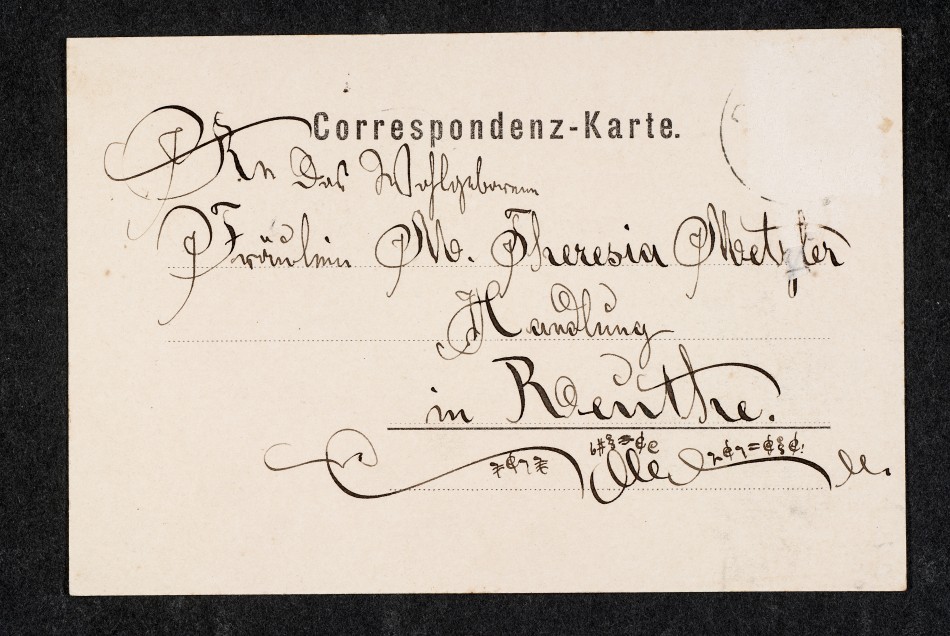 Correspondenz-Karte.
An das Wohlgeborene
Fräulein M. Theresia Metzler
Handlung
in Reuthe.